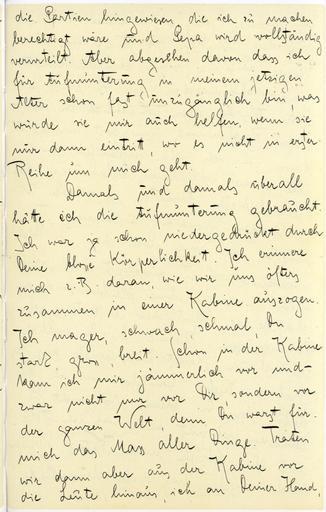 die Partien hingewiesen die ich zu machen
berechtigt wäre und Pepa wird vollständig
verurteilt. Aber abgesehen davon dass ich
für Aufmunterung in meinem jetzigen
Alter schon fast unzugänglich bin, was
würde sie mir auch helfen, wenn sie
nur dann eintritt, wo es nicht in erster
Reihe um mich geht.
Damals und damals überall
hätte ich die Aufmunterung gebraucht.
Ich war ja schon niedergedrückt durch
Deine blosse Körperlichkeit. Ich erinnere
mich z.B. daran, wie wir uns öfters
zusammen in einer Kabine auszogen.
Ich mager, schwach, schmal, Du
stark gross, breit. Schon in der Kabine
kam ich mir jämmerlich vor und
zwar nicht nur vor Dir, sondern vor
der ganzen Welt, denn Du warst für
mich das Mass aller Dinge. Traten
wir dann aber aus der Kabine vor
die Leute hinaus, ich an Deiner Hand,